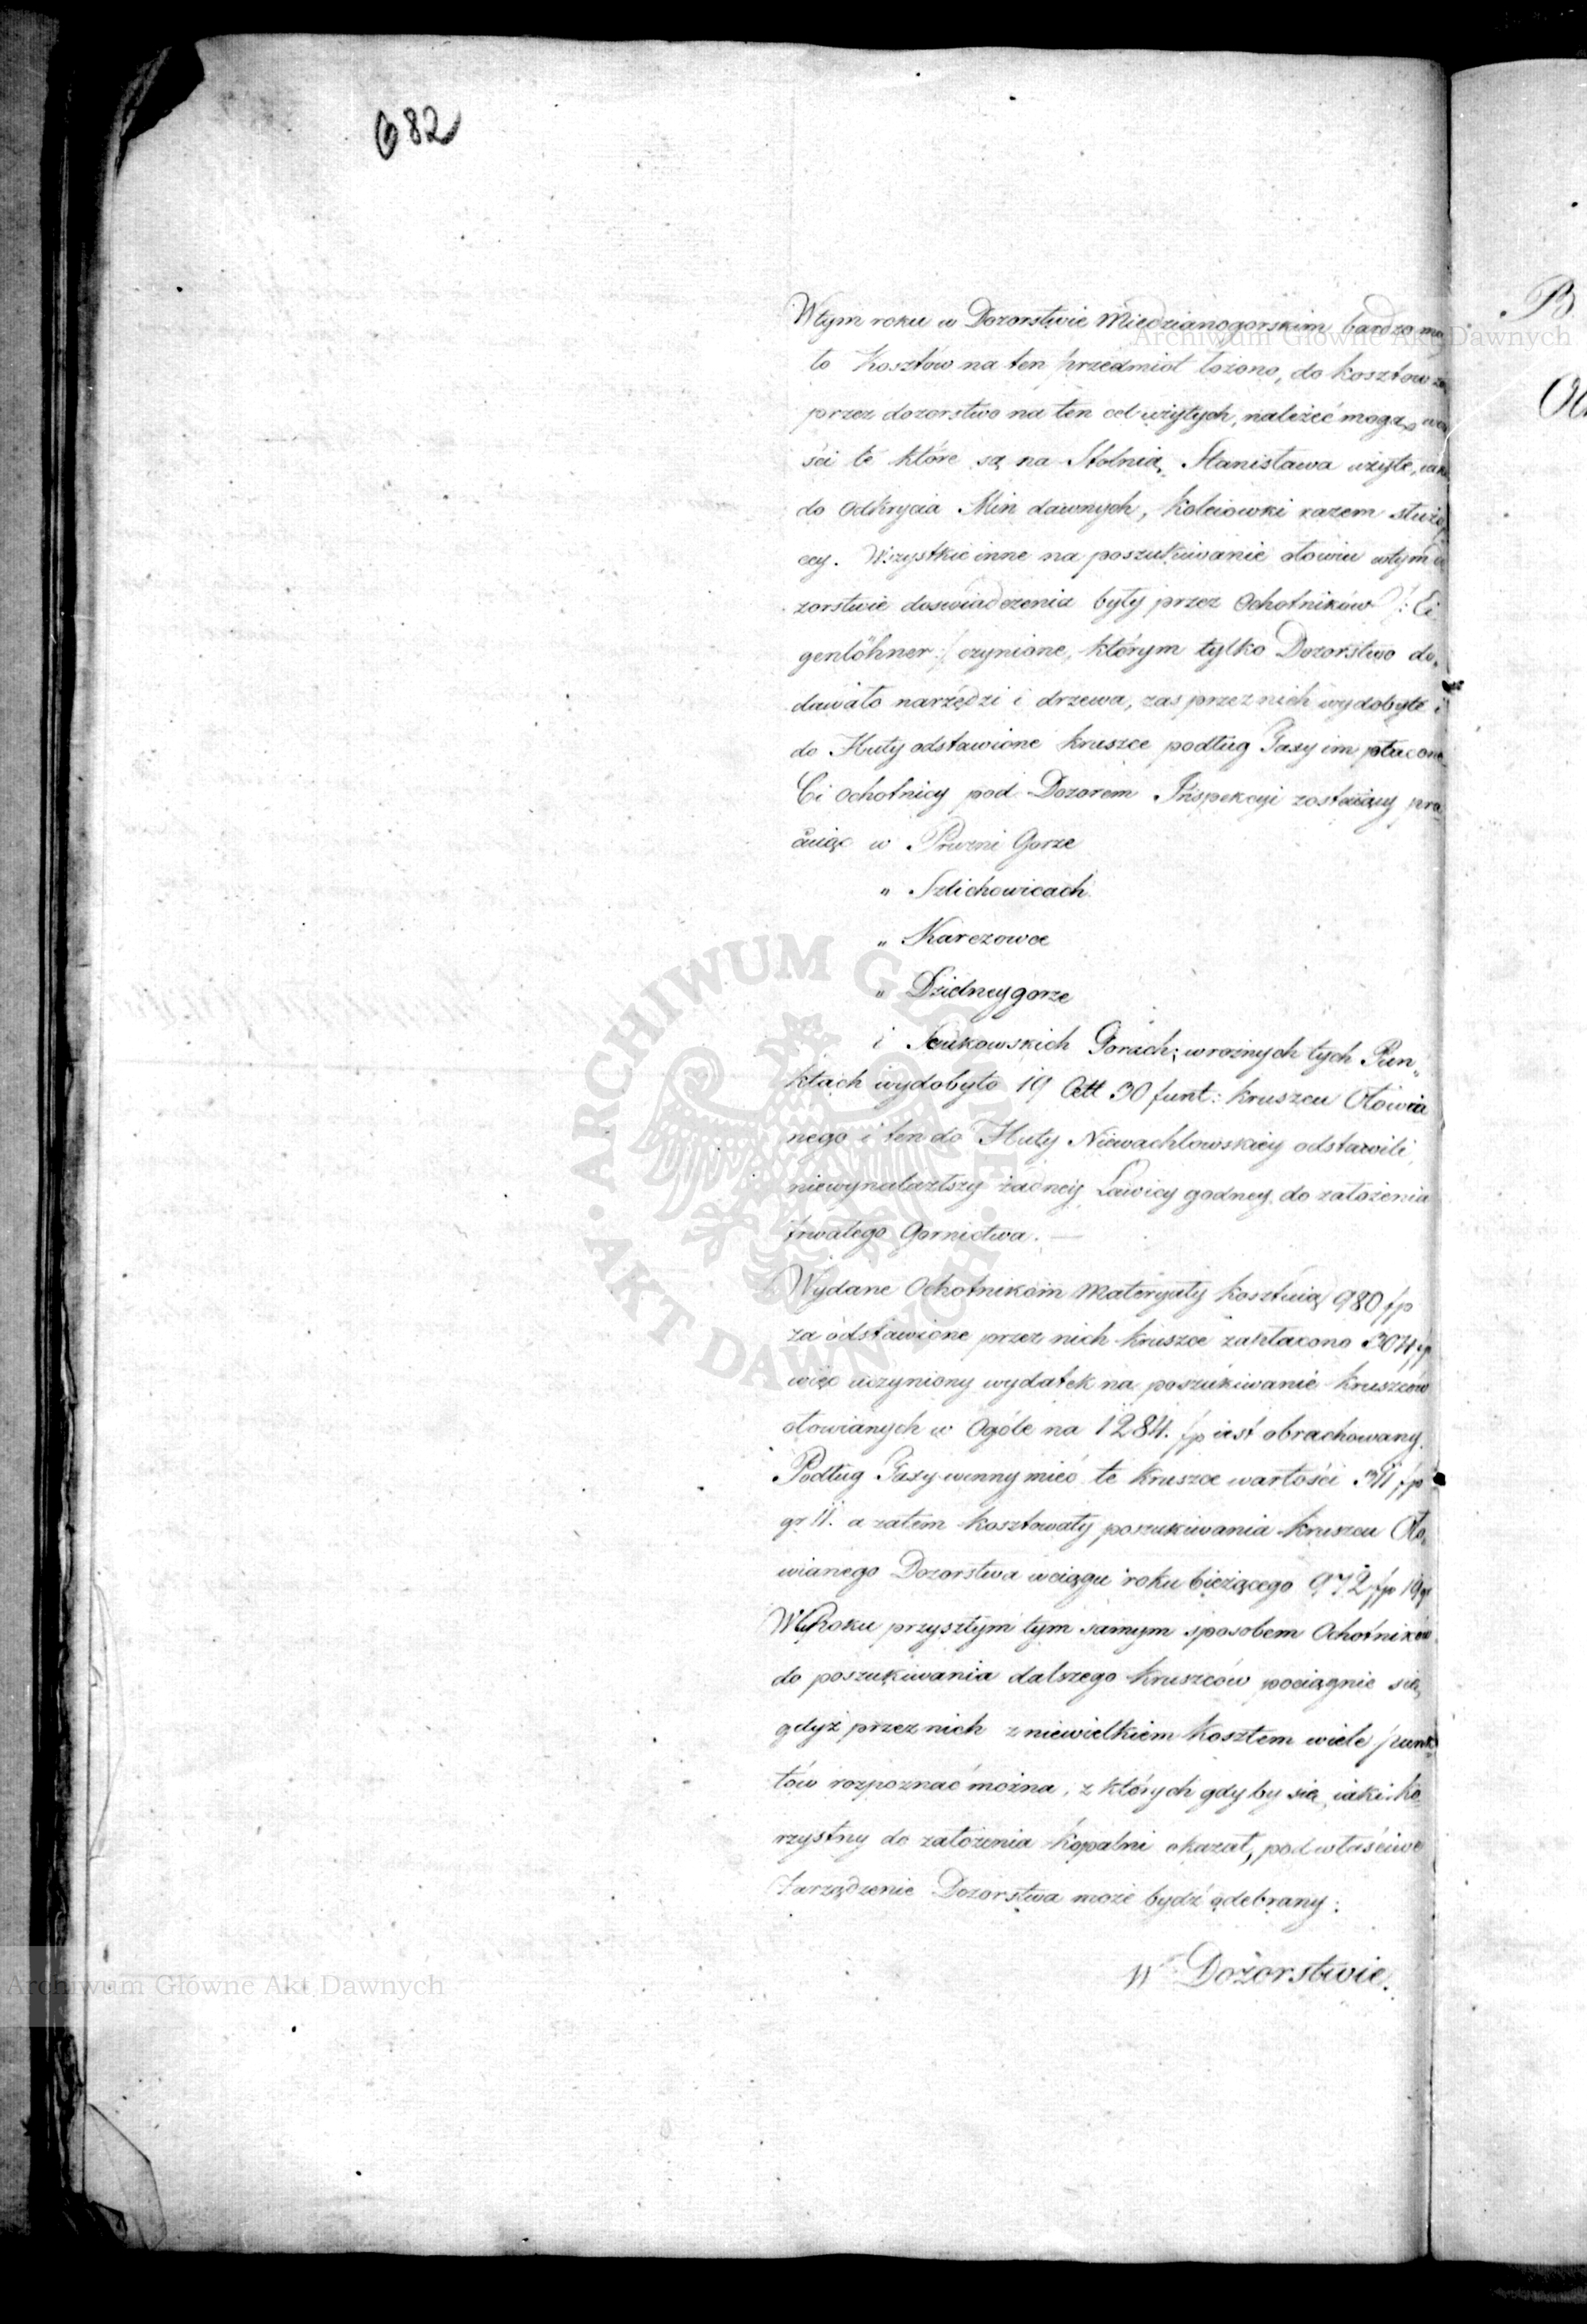 682
W tym roku w Dozorstwie Miedzianogorskim bardzo ma
Archiwum Główne Akt Dawnych
ło Kosztów na ten przedmiot łożono, do kosztow
przez dozorstwo na ten cel użytych, należeć mogą
ści te które są na Stolnią Stanisława użyte,
do odkrycia Min dawnych, kolciowki razem służą
cey. Wszystkie inne na poszukiwanie ołowiu w tym
zorstwie doswiadczenia były przez Ochotników /: Ei
genlöhner :/ czynione, którym tylko Dozorstwo do„
dawało narzędzi i drzewa, zas przez nich wydobyte i
do Huty odstawione kruszce podług Taxy im płacono
Ci ochotnicy pod Dozorem Inspekcyi zostaiący pra
cuiąc w Gorze
„ Szlichowicach
„ Karczowce
„ Dzielney gorze
i Gorach; w roznych tych Pun„
ktach wydobyto 19 Ctt 30 funt: kruszcu Ołowia
nego i ten do Huty Niewachlowskiey odstawili,
niewynalazłszy żadney Ławicy godney do założenia
trwałego Gornictwa. —
Wydane Ochotnikom Materyały kosztuią 980 fp
za odstawione przez nich kruszce zapłacono 304 fp
więc uczyniony wydatek na poszukiwanie kruszców
ołowianych w Ogóle na 1284. fp iest obrachowany.
Podług Taxy winny mieć te kruszce wartości 311 fp
gr 11. a zatem kosztowały poszukiwania kruszcu Oło„
wianego Dozorstwa w ciągu roku bieżącego 972 fp 19 gr
W Roku przyszłym tym samym sposobem Ochotników
do poszukiwania dalszego kruszców pociągnie się,
gdyż przez nich z niewielkiem kosztem wiele punk
tów rozpoznać można, z których gdyby się iaki ko
rzystny do założenia kopalni okazał, pod właściwe
Zarządzenie Dozorstwa może bydź odebrany.
W Dozorstwie.
Archiwum Główne Akt Dawnych
ARCHIWUM GŁÓWNE AKT DAWNYCH
B